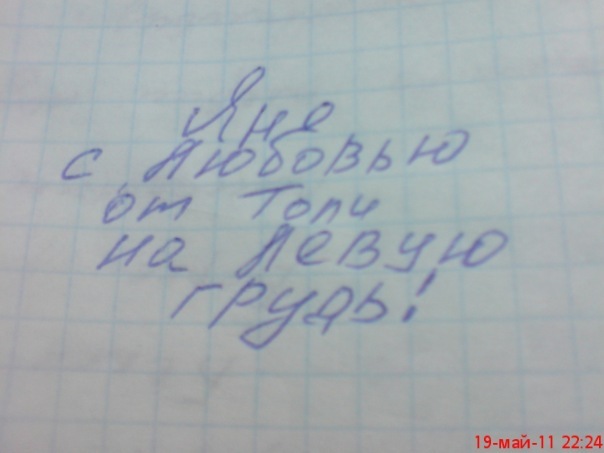 Яне
с Любовью
от Толи
на Левую
грудь!
19-май-11 22:24